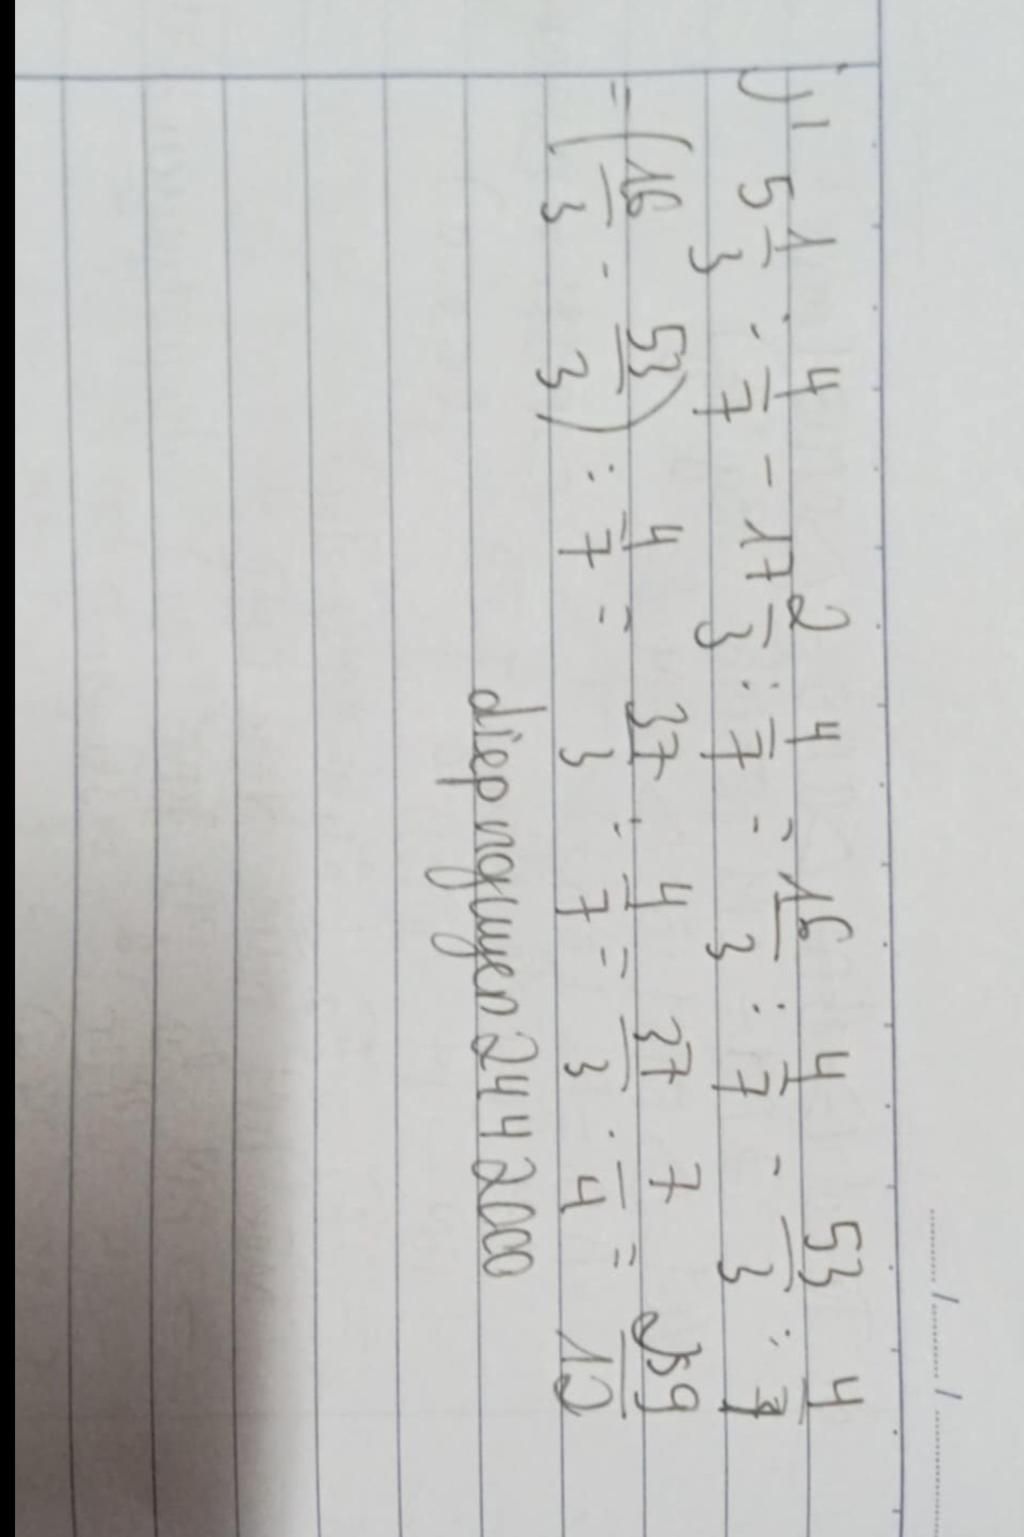 5 1/3 : 4/7 - 17 2/3 : 4/7 = 16/3 : 4/7 - 53/3 : 4/7
= (16/3 - 53/3) : 4/7 = 37/3 : 4/7 = 37/3 . 7/4 = 259/12
diepnguyen2442000